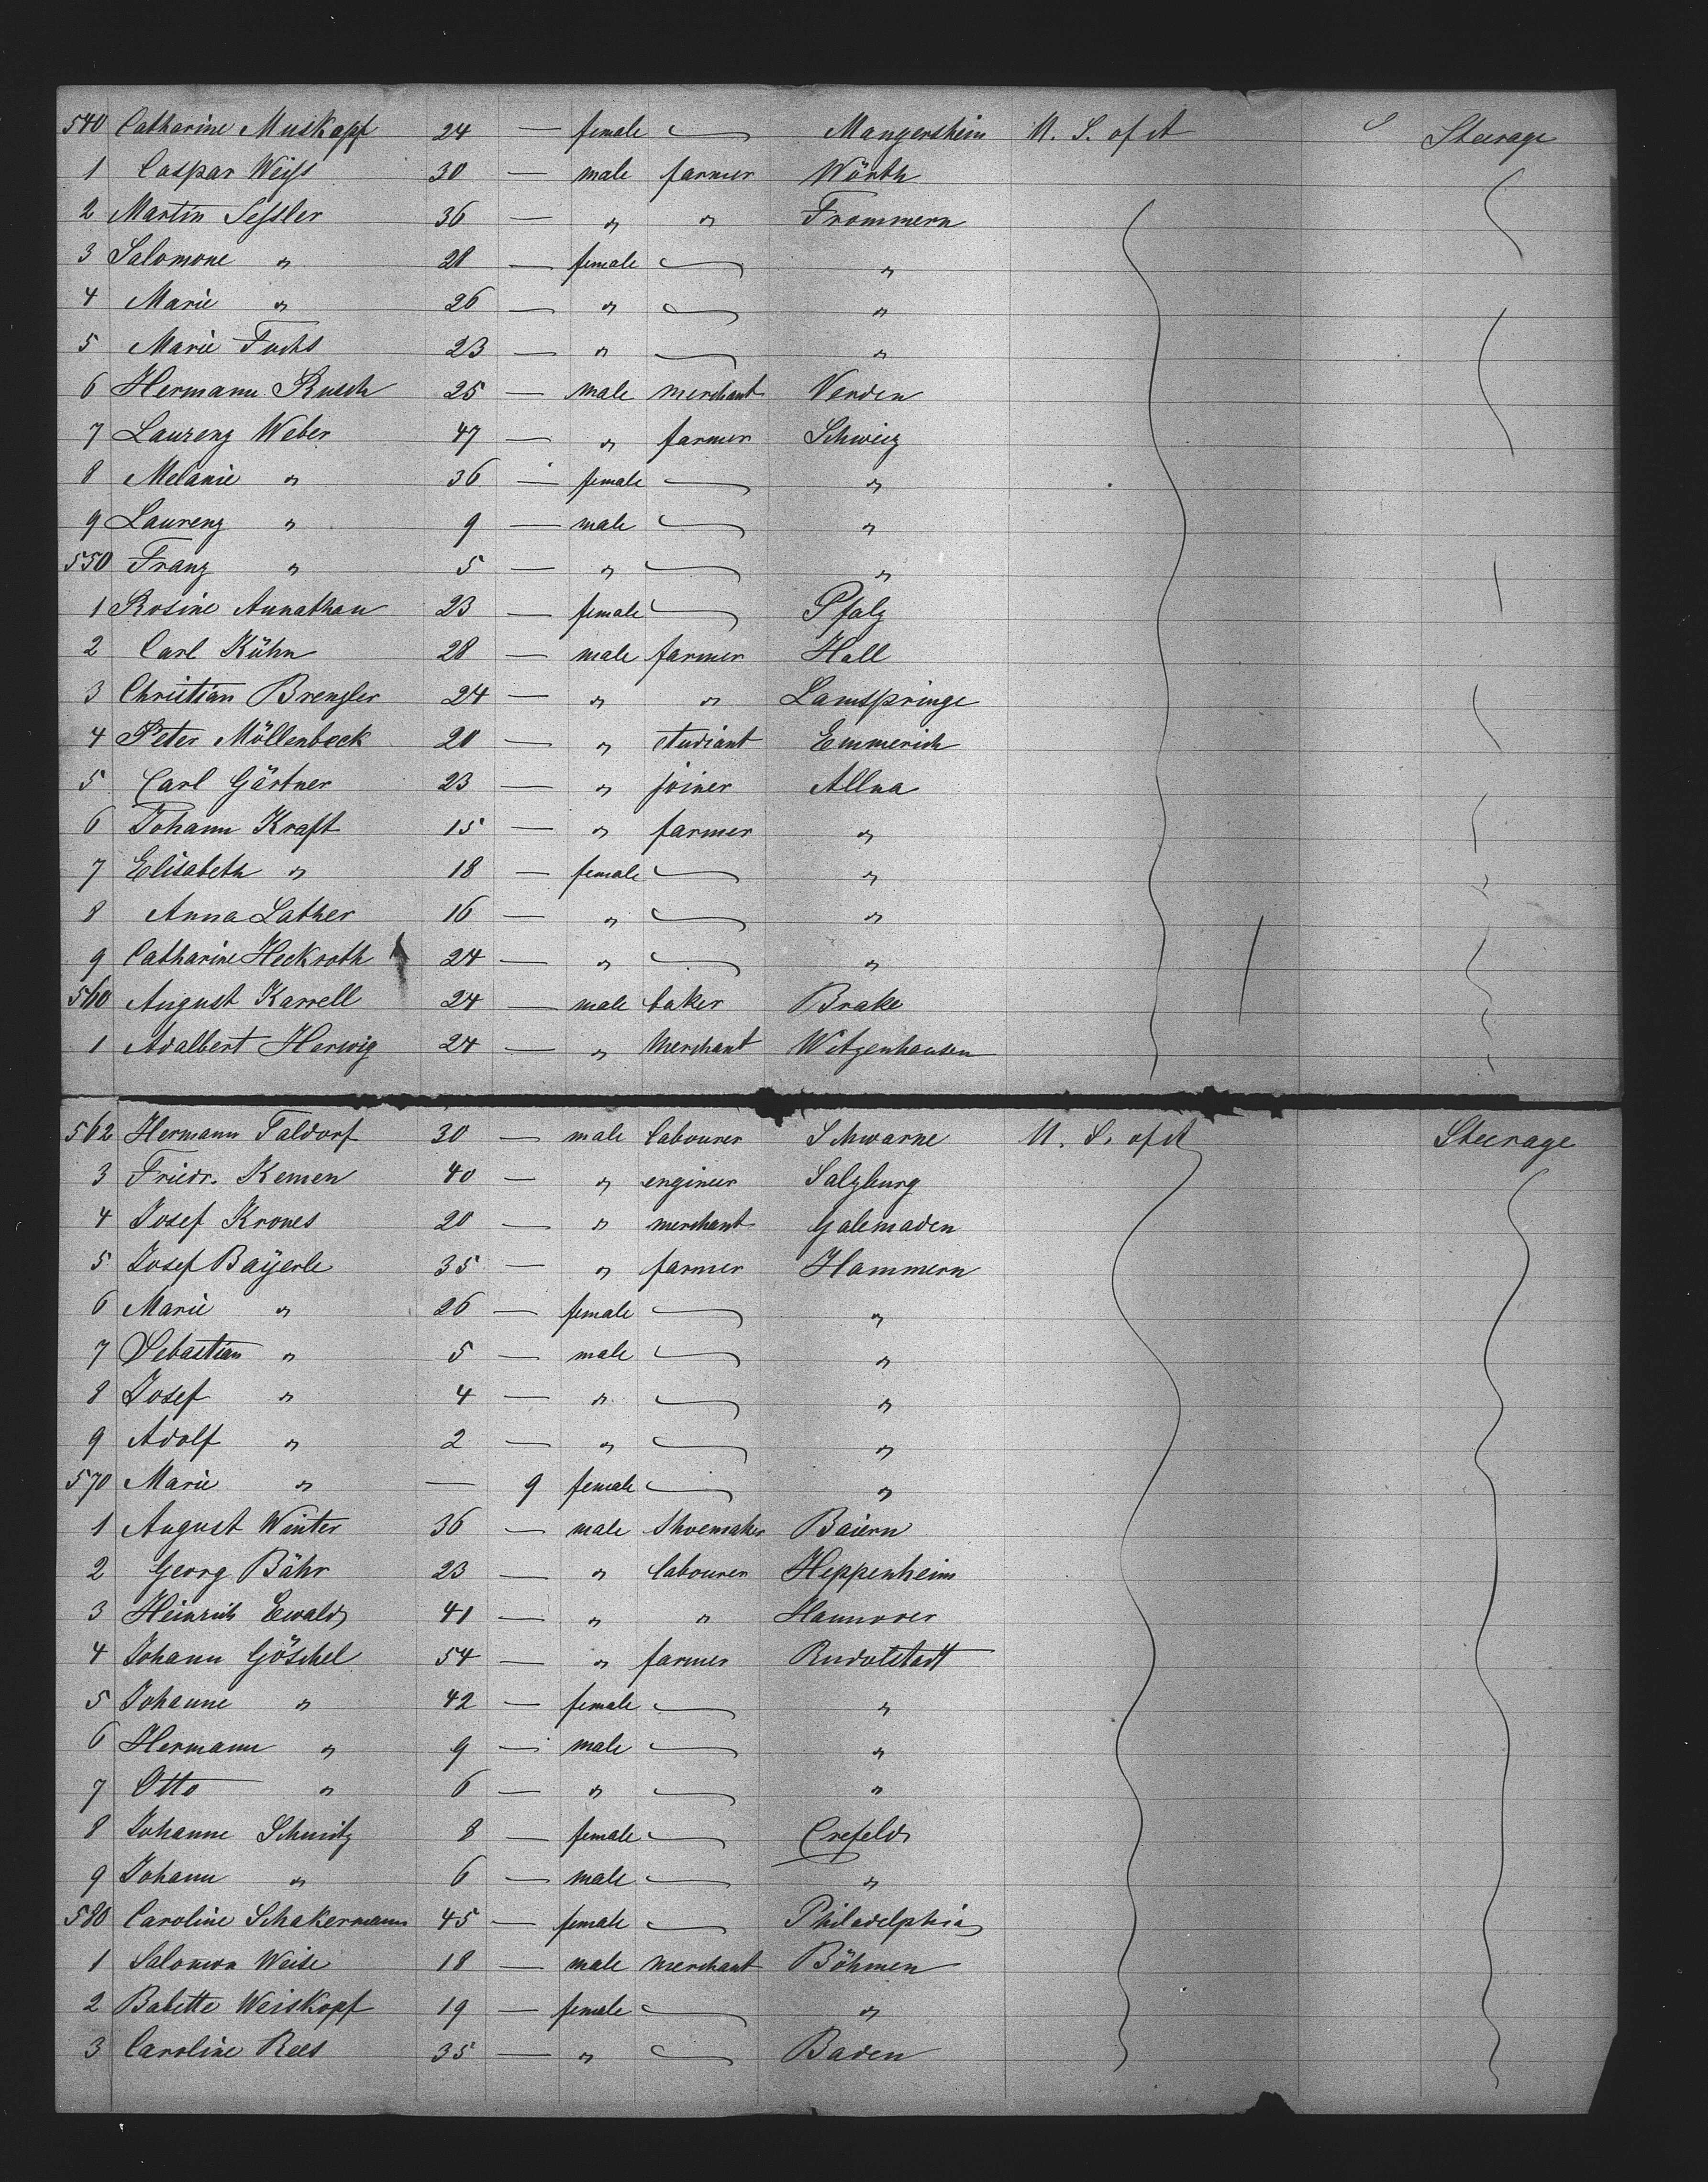 540 Catharine Muskopf 24 — female — Mangersheim U. S. of A Steerage
1 Caspar Weiß 30 — male farmer Wörth
2 Martin Seßler 36 — " " Frommern
3 Salomone " 28 — female — "
4 Marie " 26 — " — "
5 Marie Fuchs 23 — " — "
6 Hermann Rusch 25 — male merchant Verden
7 Laurenz Weber 47 — " farmer Schweiz
8 Melanie " 36 — female — "
9 Laurenz " 9 — male — "
550 Franz " 5 — " — "
1 Rosine Annathan 23 — female — Pfalz
2 Carl Kühn 28 — male farmer Hall
3 Christian Brenzler 24 — " " Lamspringe
4 Peter Möllenbeck 20 — " student Emmerich
5 Carl Gärtner 23 — " joiner Allna
6 Johann Kraft 15 — " farmer "
7 Elisabeth " 18 — female — "
8 Anna Lather 16 — " — "
9 Catharine Heckroth 24 — " — "
560 August Karrell 24 — male baker Brake
1 Adalbert Herwig 24 — " Merchant Witzenhausen
562 Hermann Taldorf 30 — male labourer Schwarne U. S. of A Steerage
3 Friedr. Kemen 40 — " engineer Salzburg
4 Josef Krones 20 — " merchant Galemaden
5 Josef Bayerle 35 — " farmer Hammern
6 Marie " 26 — female — "
7 Sebastian " 5 — male — "
8 Josef " 4 — " — "
9 Adolf " 2 — " — "
570 Marie " — 9 female — "
1 August Winter 36 — male Shoemaker Baiern
2 Georg Bähr 23 — " labourer Heppenheim
3 Heinrich Ewald 41 — " " Hannover
4 Johann Göschel 54 — " farmer Rudolstadt
5 Johanne " 42 — female — "
6 Hermann " 9 — male — "
7 Otto " 6 — " — "
8 Johanne Schmitz 8 — female — Crefeld
9 Johann " 6 — male — "
580 Caroline Schakermann 45 — female — Philadelphia
1 Salomon Weise 18 — male merchant Böhmen
2 Babette Weiskopf 19 — female — "
3 Caroline Rees 35 — " — Baden